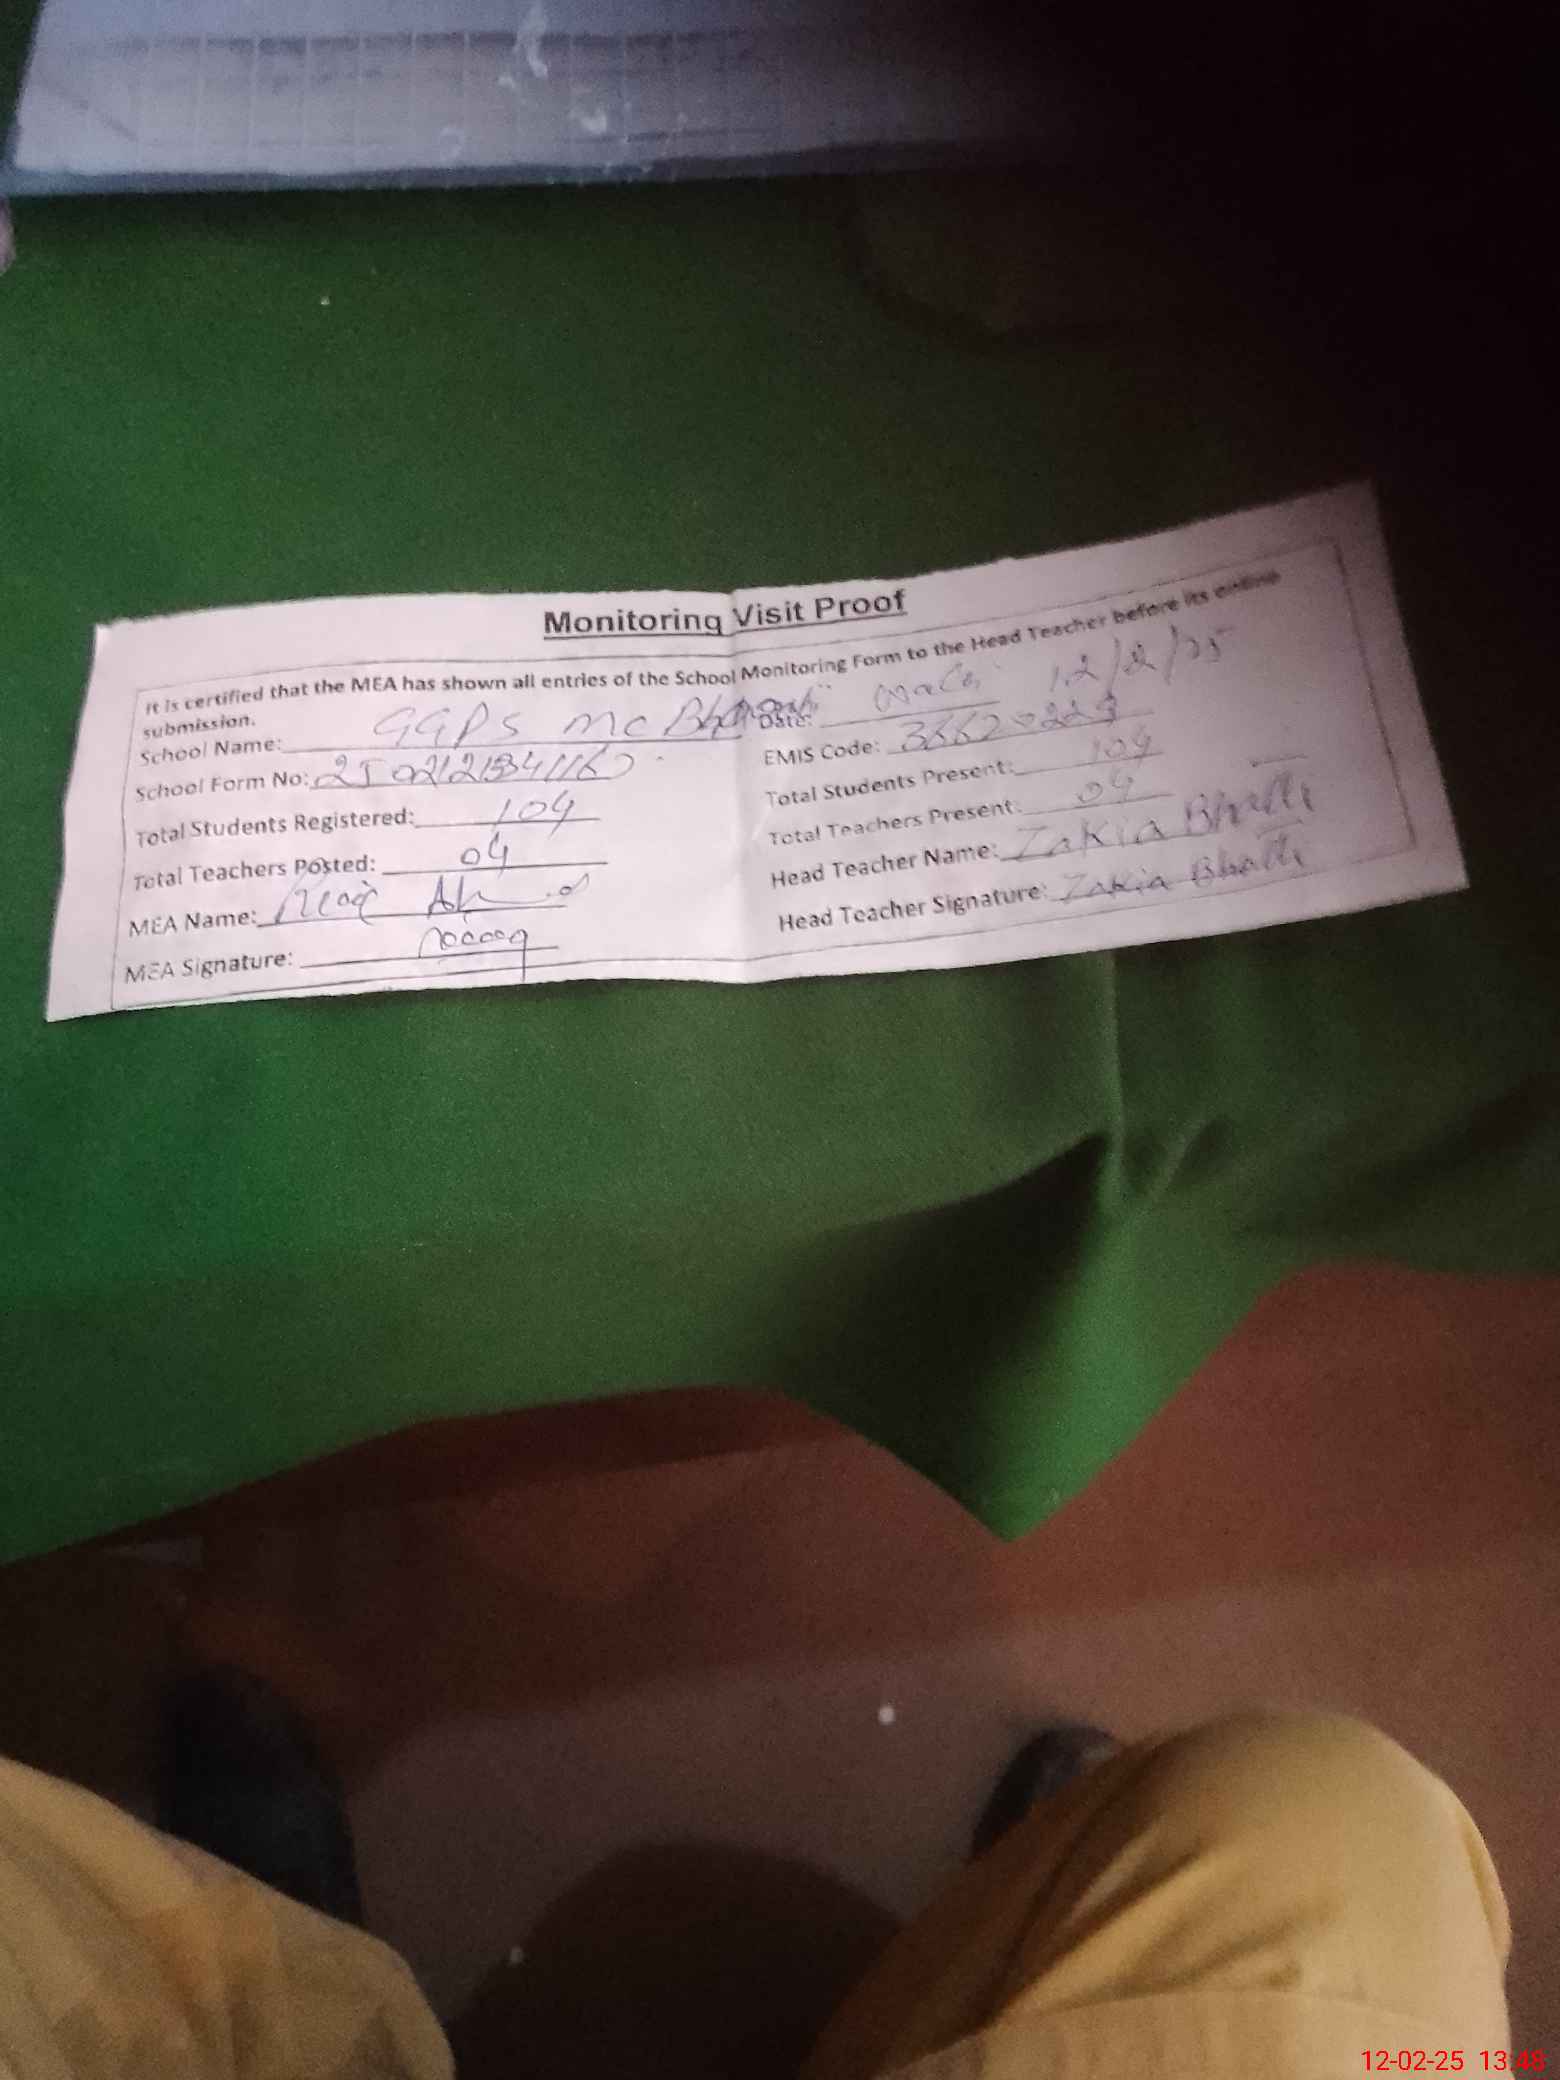 Monitoring Visit Proof
It is certified that the MEA has shown all entries of the School Monitoring Form to the Head Teacher before its online
submission.
School Name: GGPS MC Date: 12/2/25
School Form No: EMIS Code:
Total Students Registered: 104 Total Students Present: 104
Total Teachers Posted: 04 Total Teachers Present: 04
MEA Name: Head Teacher Name: Zakia Bhatti
MEA Signature: Head Teacher Signature: Zakia Bhatti
12-02-25 13:48